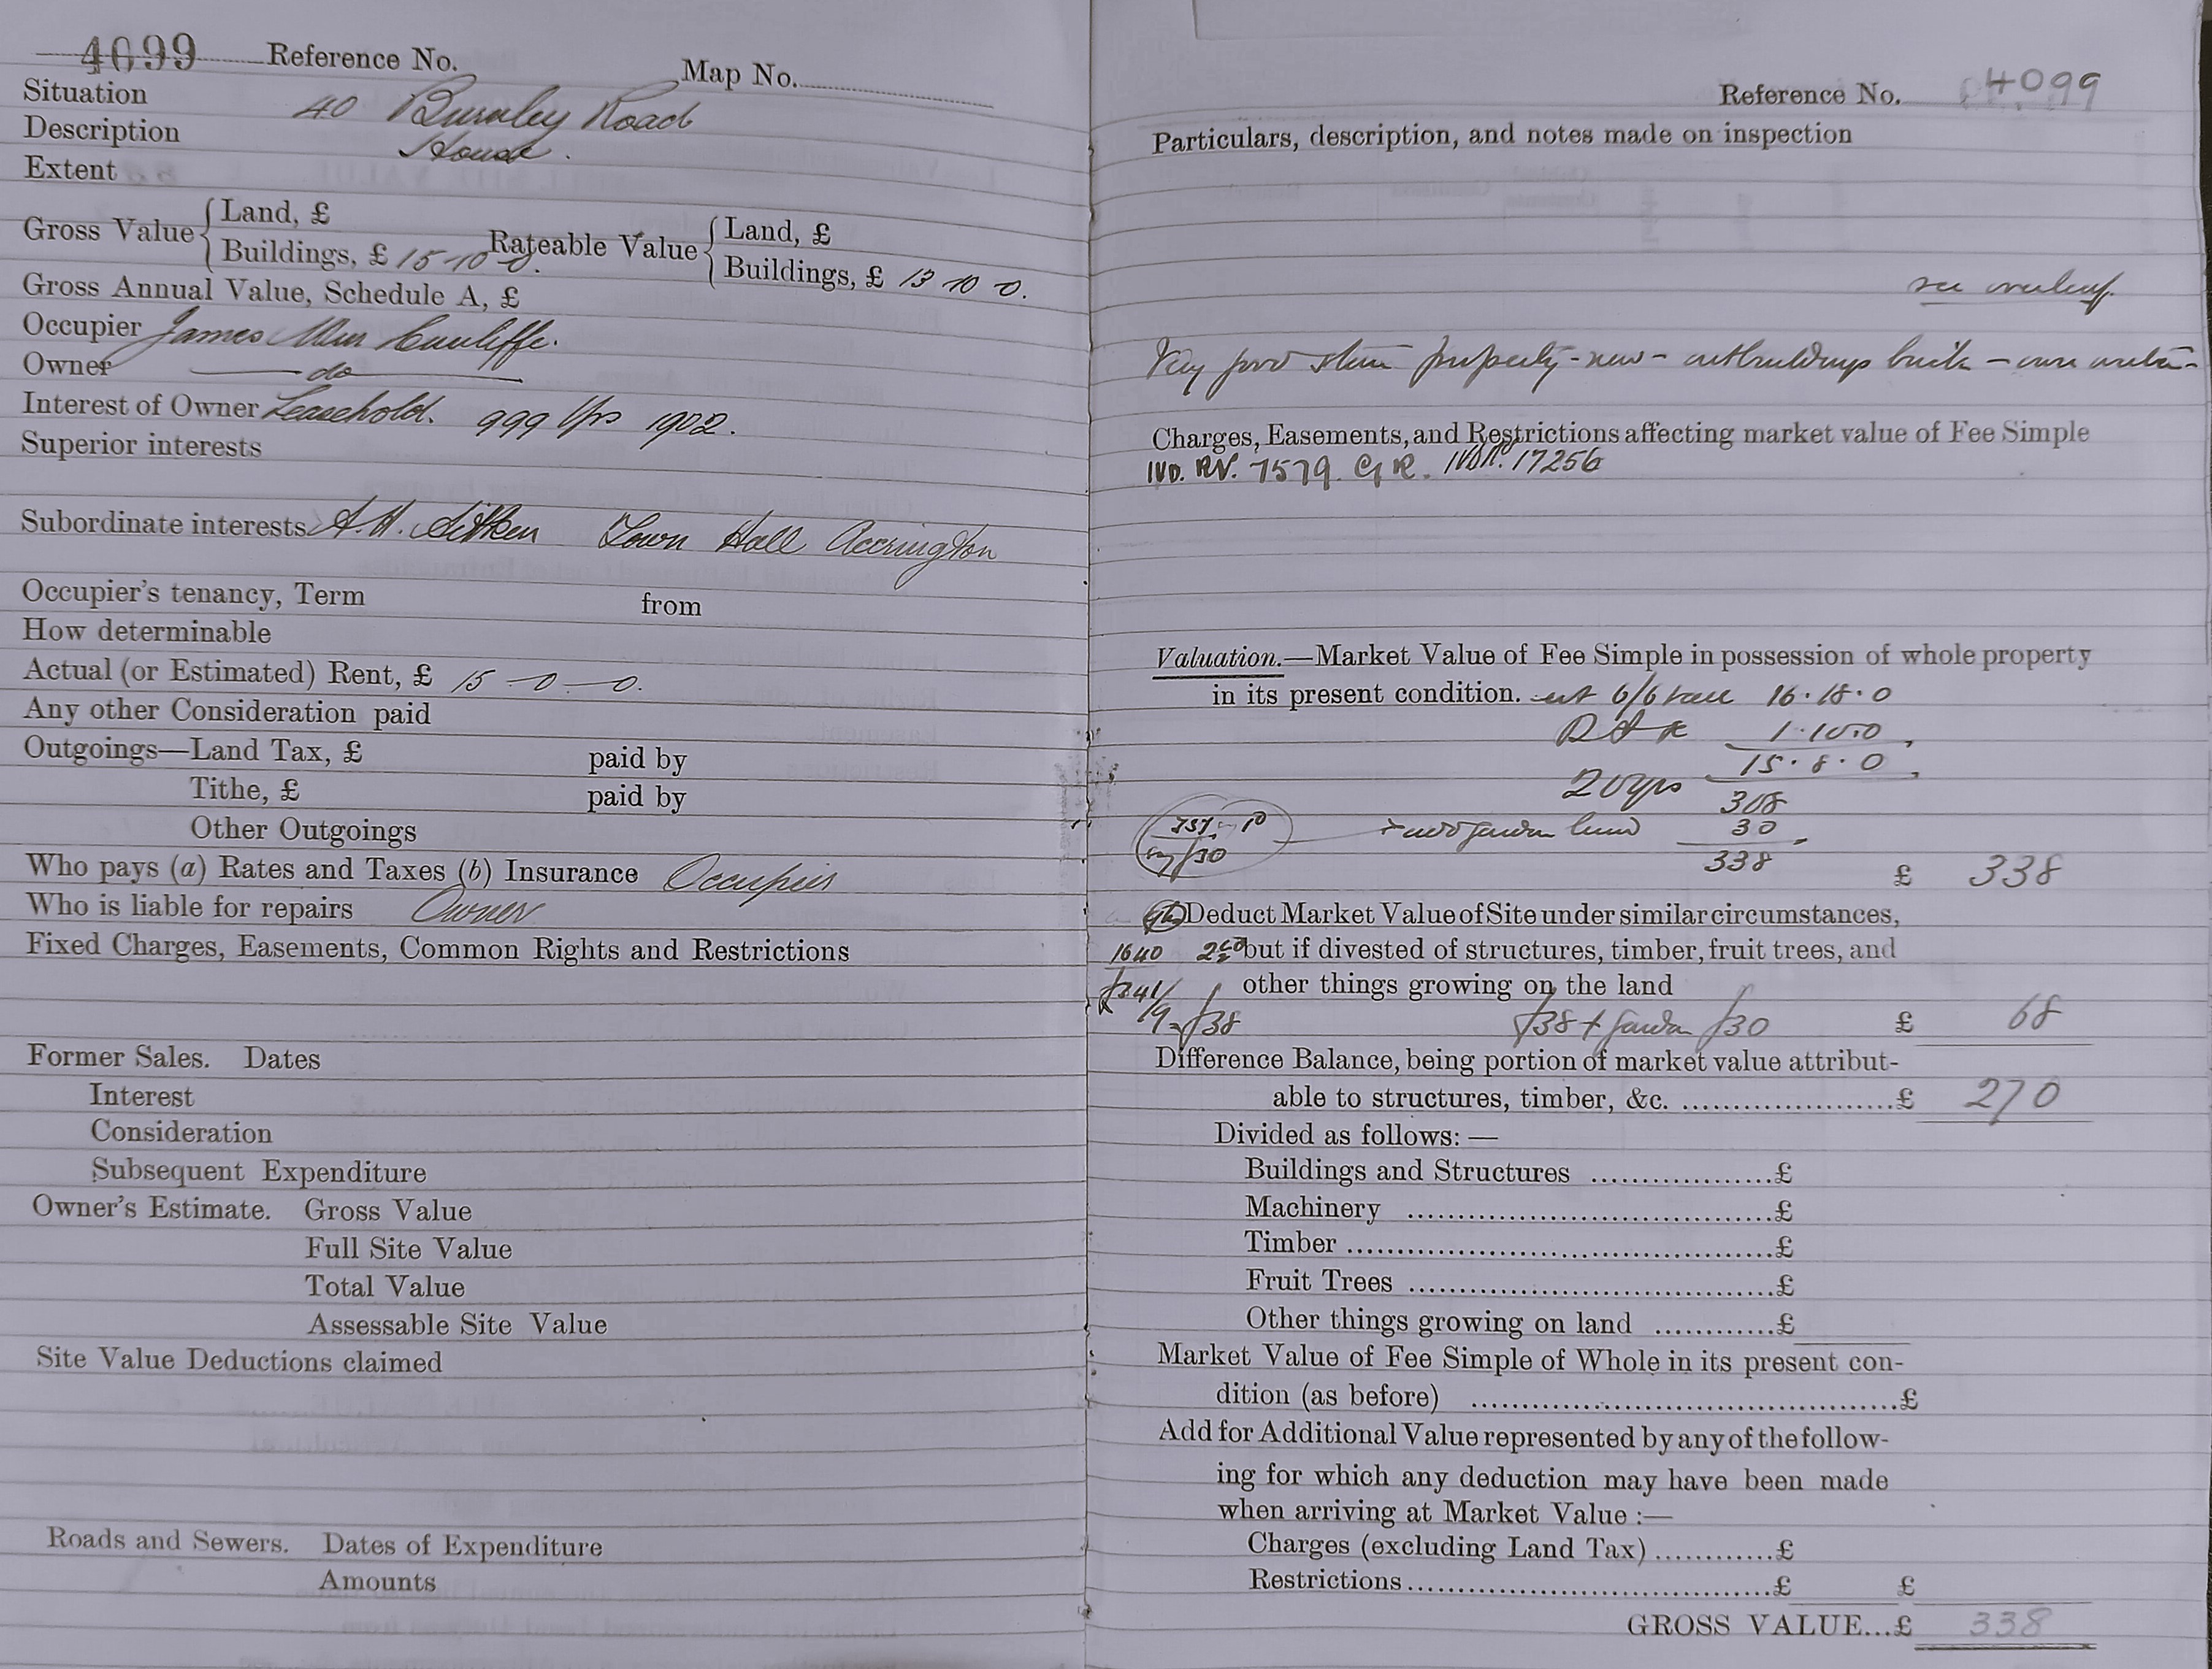 4099 Reference No. Map No.
Situation 40 Burnley Road
Description House.
Extent
Gross Value { Land, £
Buildings, £ 15-10-0. Rateable Value { Land, £
Buildings, £ 13 10 0.
Gross Annual Value, Schedule A, £
Occupier James Cunliffe.
Owner do
Interest of Owner Leasehold. 999 Yrs 1902.
Superior interests
Subordinate interests A.H. Aitken Town Hall Accrington
Occupier's tenancy, Term from
How determinable
Actual (or Estimated) Rent, £ 15-0-0.
Any other Consideration paid
Outgoings—Land Tax, £ paid by
Tithe, £ paid by
Other Outgoings
Who pays (a) Rates and Taxes (b) Insurance Occupier
Who is liable for repairs Owner
Fixed Charges, Easements, Common Rights and Restrictions
Former Sales. Dates
Interest
Consideration
Subsequent Expenditure
Owner's Estimate. Gross Value
Full Site Value
Total Value
Assessable Site Value
Site Value Deductions claimed
Roads and Sewers. Dates of Expenditure
Amounts
Reference No. 4099
Particulars, description, and notes made on inspection
see overleaf.
Very good stone property - new - outbuildings
Charges, Easements, and Restrictions affecting market value of Fee Simple
IVD. RV. 7579. G R. 17256
Valuation.—Market Value of Fee Simple in possession of whole property
in its present condition. 6/6 16.18.0
1.10.0
15.8.0
20 yrs 308
garden land 30
338 £ 338
Deduct Market Value of Site under similar circumstances,
1640 but if divested of structures, timber, fruit trees, and
other things growing on the land
£38 £38 + garden £30 £ 68
Difference Balance, being portion of market value attribut-
able to structures, timber, &c. ......................£ 270
Divided as follows: —
Buildings and Structures ...................£
Machinery ......................................£
Timber .............................................£
Fruit Trees ......................................£
Other things growing on land ............£
Market Value of Fee Simple of Whole in its present con-
dition (as before) ............................................£
Add for Additional Value represented by any of the follow-
ing for which any deduction may have been made
when arriving at Market Value :—
Charges (excluding Land Tax) ............£
Restrictions ......................................£ £
GROSS VALUE...£ 338